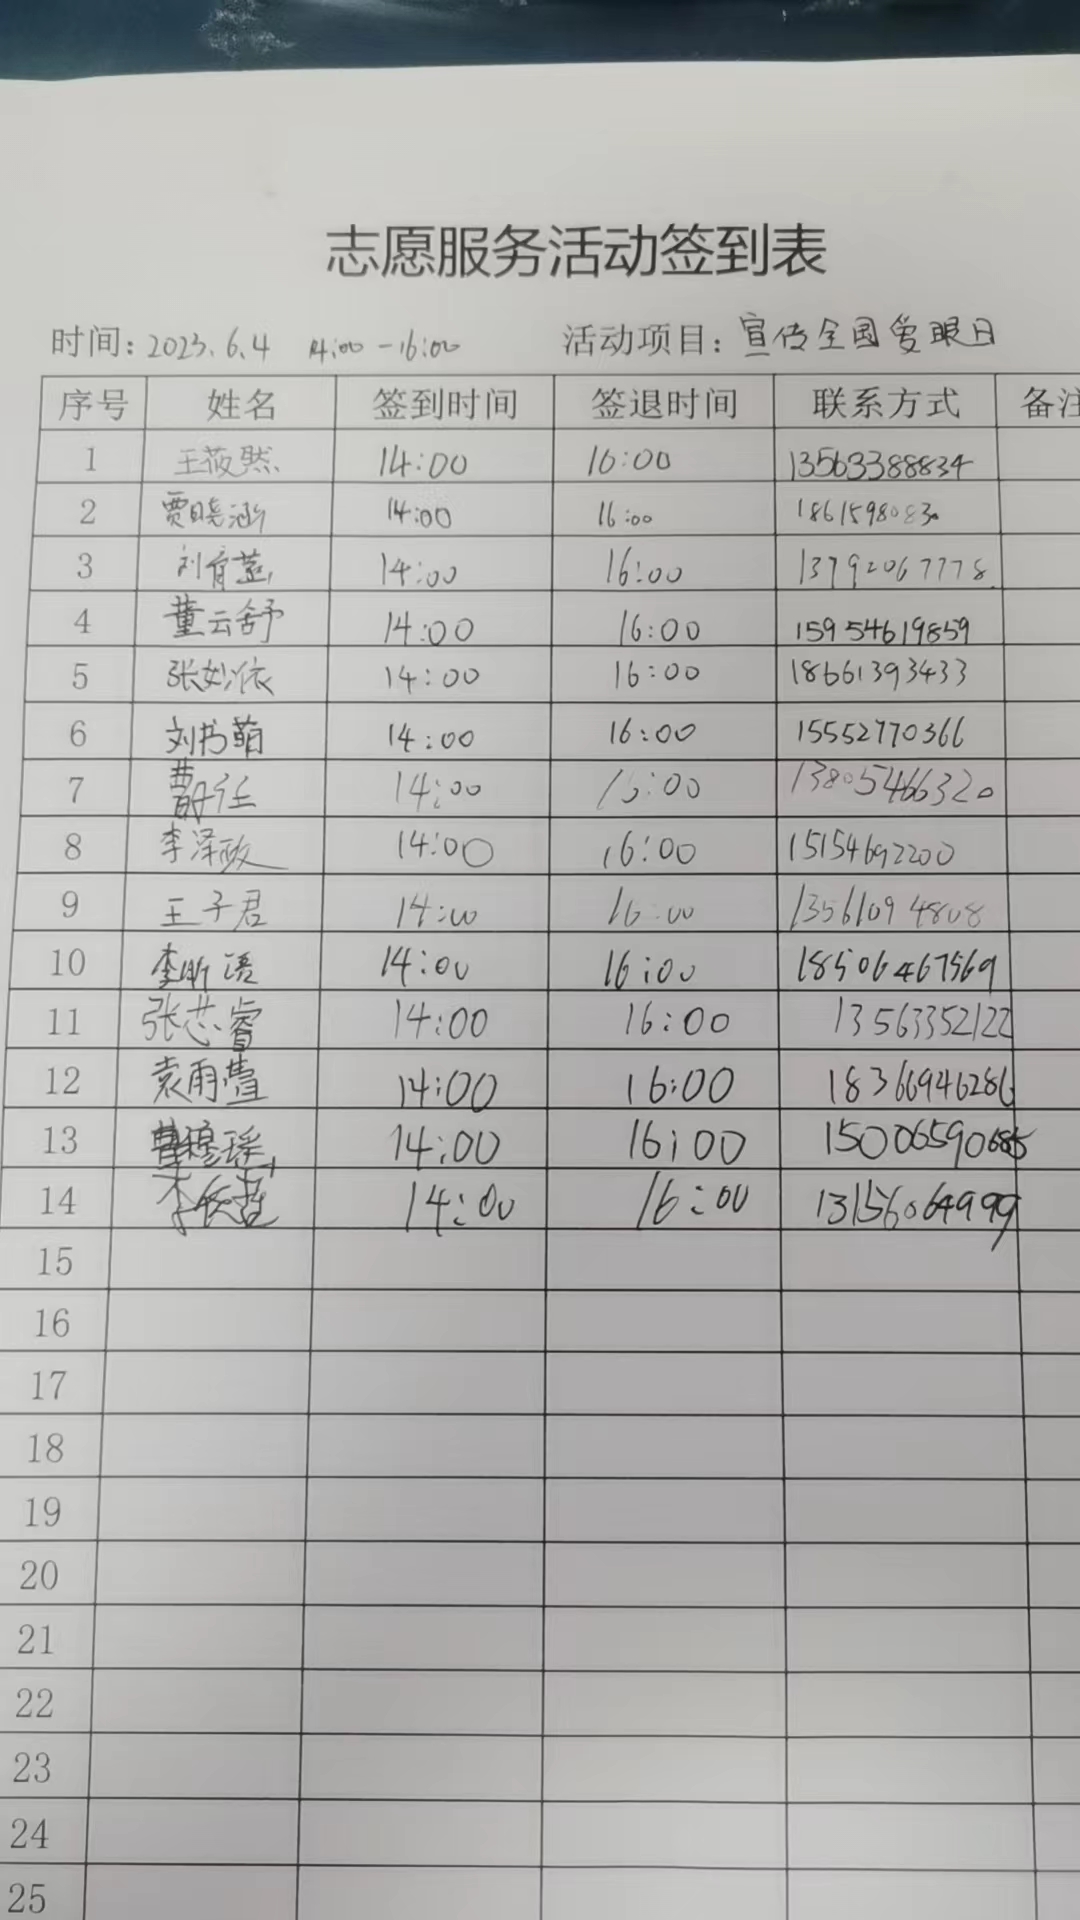 志愿服务活动签到表
时间：2023.6.4 14:00-16:00 活动项目：宣传全国爱眼日
序号 姓名 签到时间 签退时间 联系方式 备注
1 王筱然 14:00 16:00 13563388834
2 贾晓涵 14:00 16:00 18615980830
3 14:00 16:00 13792067778
4 董云舒 14:00 16:00 15954619859
5 张妙依 14:00 16:00 18661393433
6 刘书萌 14:00 16:00 15552770366
7 14:00 16:00 13805466320
8 李泽政 14:00 16:00 15154692200
9 王子君 14:00 16:00 13561094808
10 李昕语 14:00 16:00 18506467569
11 张芯睿 14:00 16:00 13563352122
12 袁雨雪 14:00 16:00 18366946286
13 14:00 16:00
14 14:00 16:00 13156064999
15
16
17
18
19
20
21
22
23
24
25